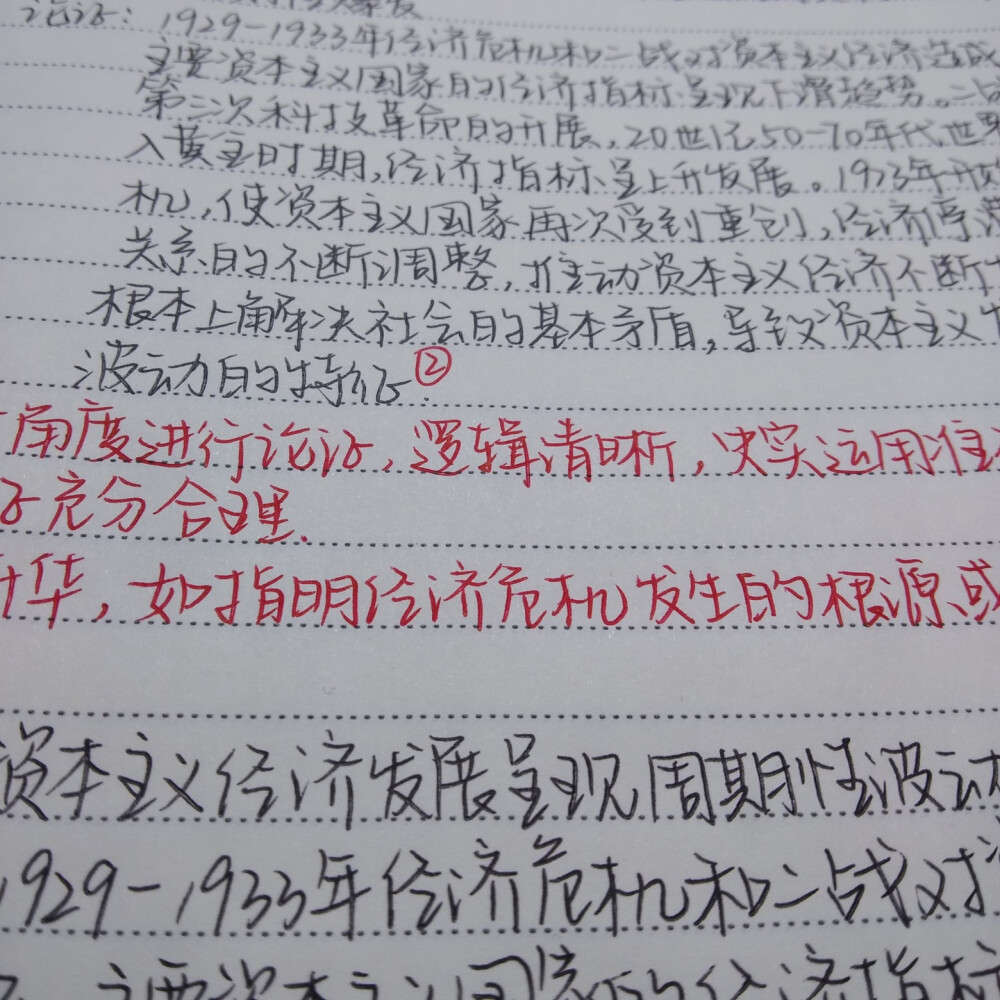 论证：1929-1933年经济危机和二战对资本主义经济造成
主要资本主义国家的经济指标呈现下滑趋势。二战
第三次科技革命的开展，20世纪50-70年代世界
入黄金时期，经济指标呈上升发展。1973年开始
机，使资本主义国家再次受到重创，经济停滞
关系的不断调整，推动资本主义经济不断
根本上解决社会的基本矛盾，导致资本主义
波动的特征②
角度进行论证，逻辑清晰，史实运用准
充分合理.
升华，如指明经济危机发生的根源或
资本主义经济发展呈现周期性波动
1929-1933年经济危机和二战对资
主要资本主义国家的经济指标